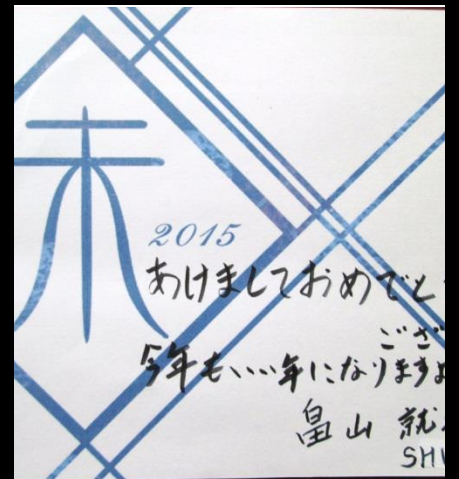 未
2015
あけましておめでと
ござ
今年もいい年になりますよ
畠山 就
SH